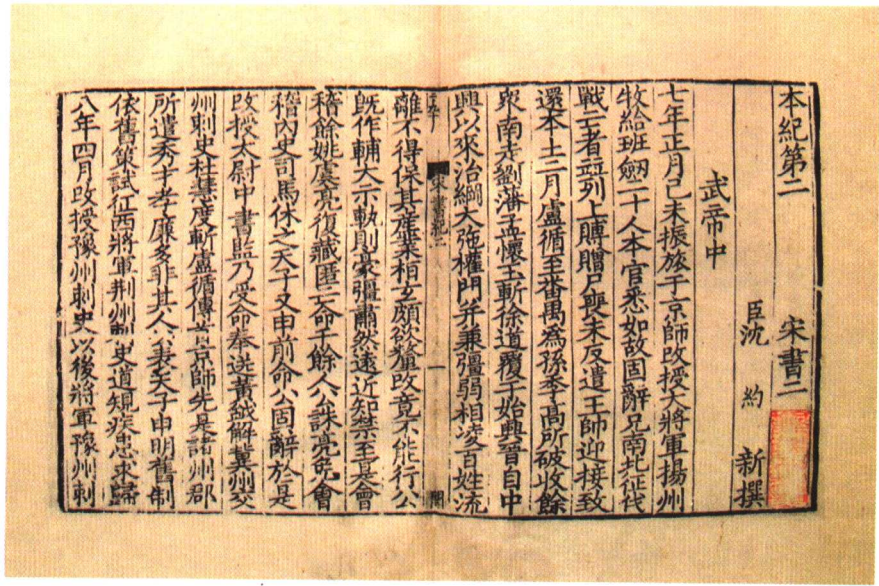 本紀第二 宋書二
臣沈 約 新撰
武帝中
七年正月己未振旅于京師改授大將軍揚州
牧給班劒二十人本官悉如故固辭凡南北征伐
戰亡者並列上賻贈尸喪未反遣王師迎接致
還本土二月盧循至番禺爲孫季高所破收餘
衆南走劉藩孟懷玉斬徐道覆于始興晉自中
興以來治綱大弛權門并兼彊弱相凌百姓流
離不得保其產業桓玄頗欲釐改竟不能行公
旣作輔大示軌則豪彊肅然遠近知禁至是會
稽餘姚虞亮復藏匿亡命千餘人公誅亮免會
稽內史司馬休之天子又申前命公固辭於是
改授太尉中書監乃受命奉送黃鉞解冀州交
州刺史杜慧度斬盧循傳首京師先是諸州郡
所遣秀才孝廉多非其人公表天子申明舊制
依舊策試征西將軍荆州刺史道規疾患求歸
八年四月改授豫州刺史以後將軍豫州刺
宋書紀二
一